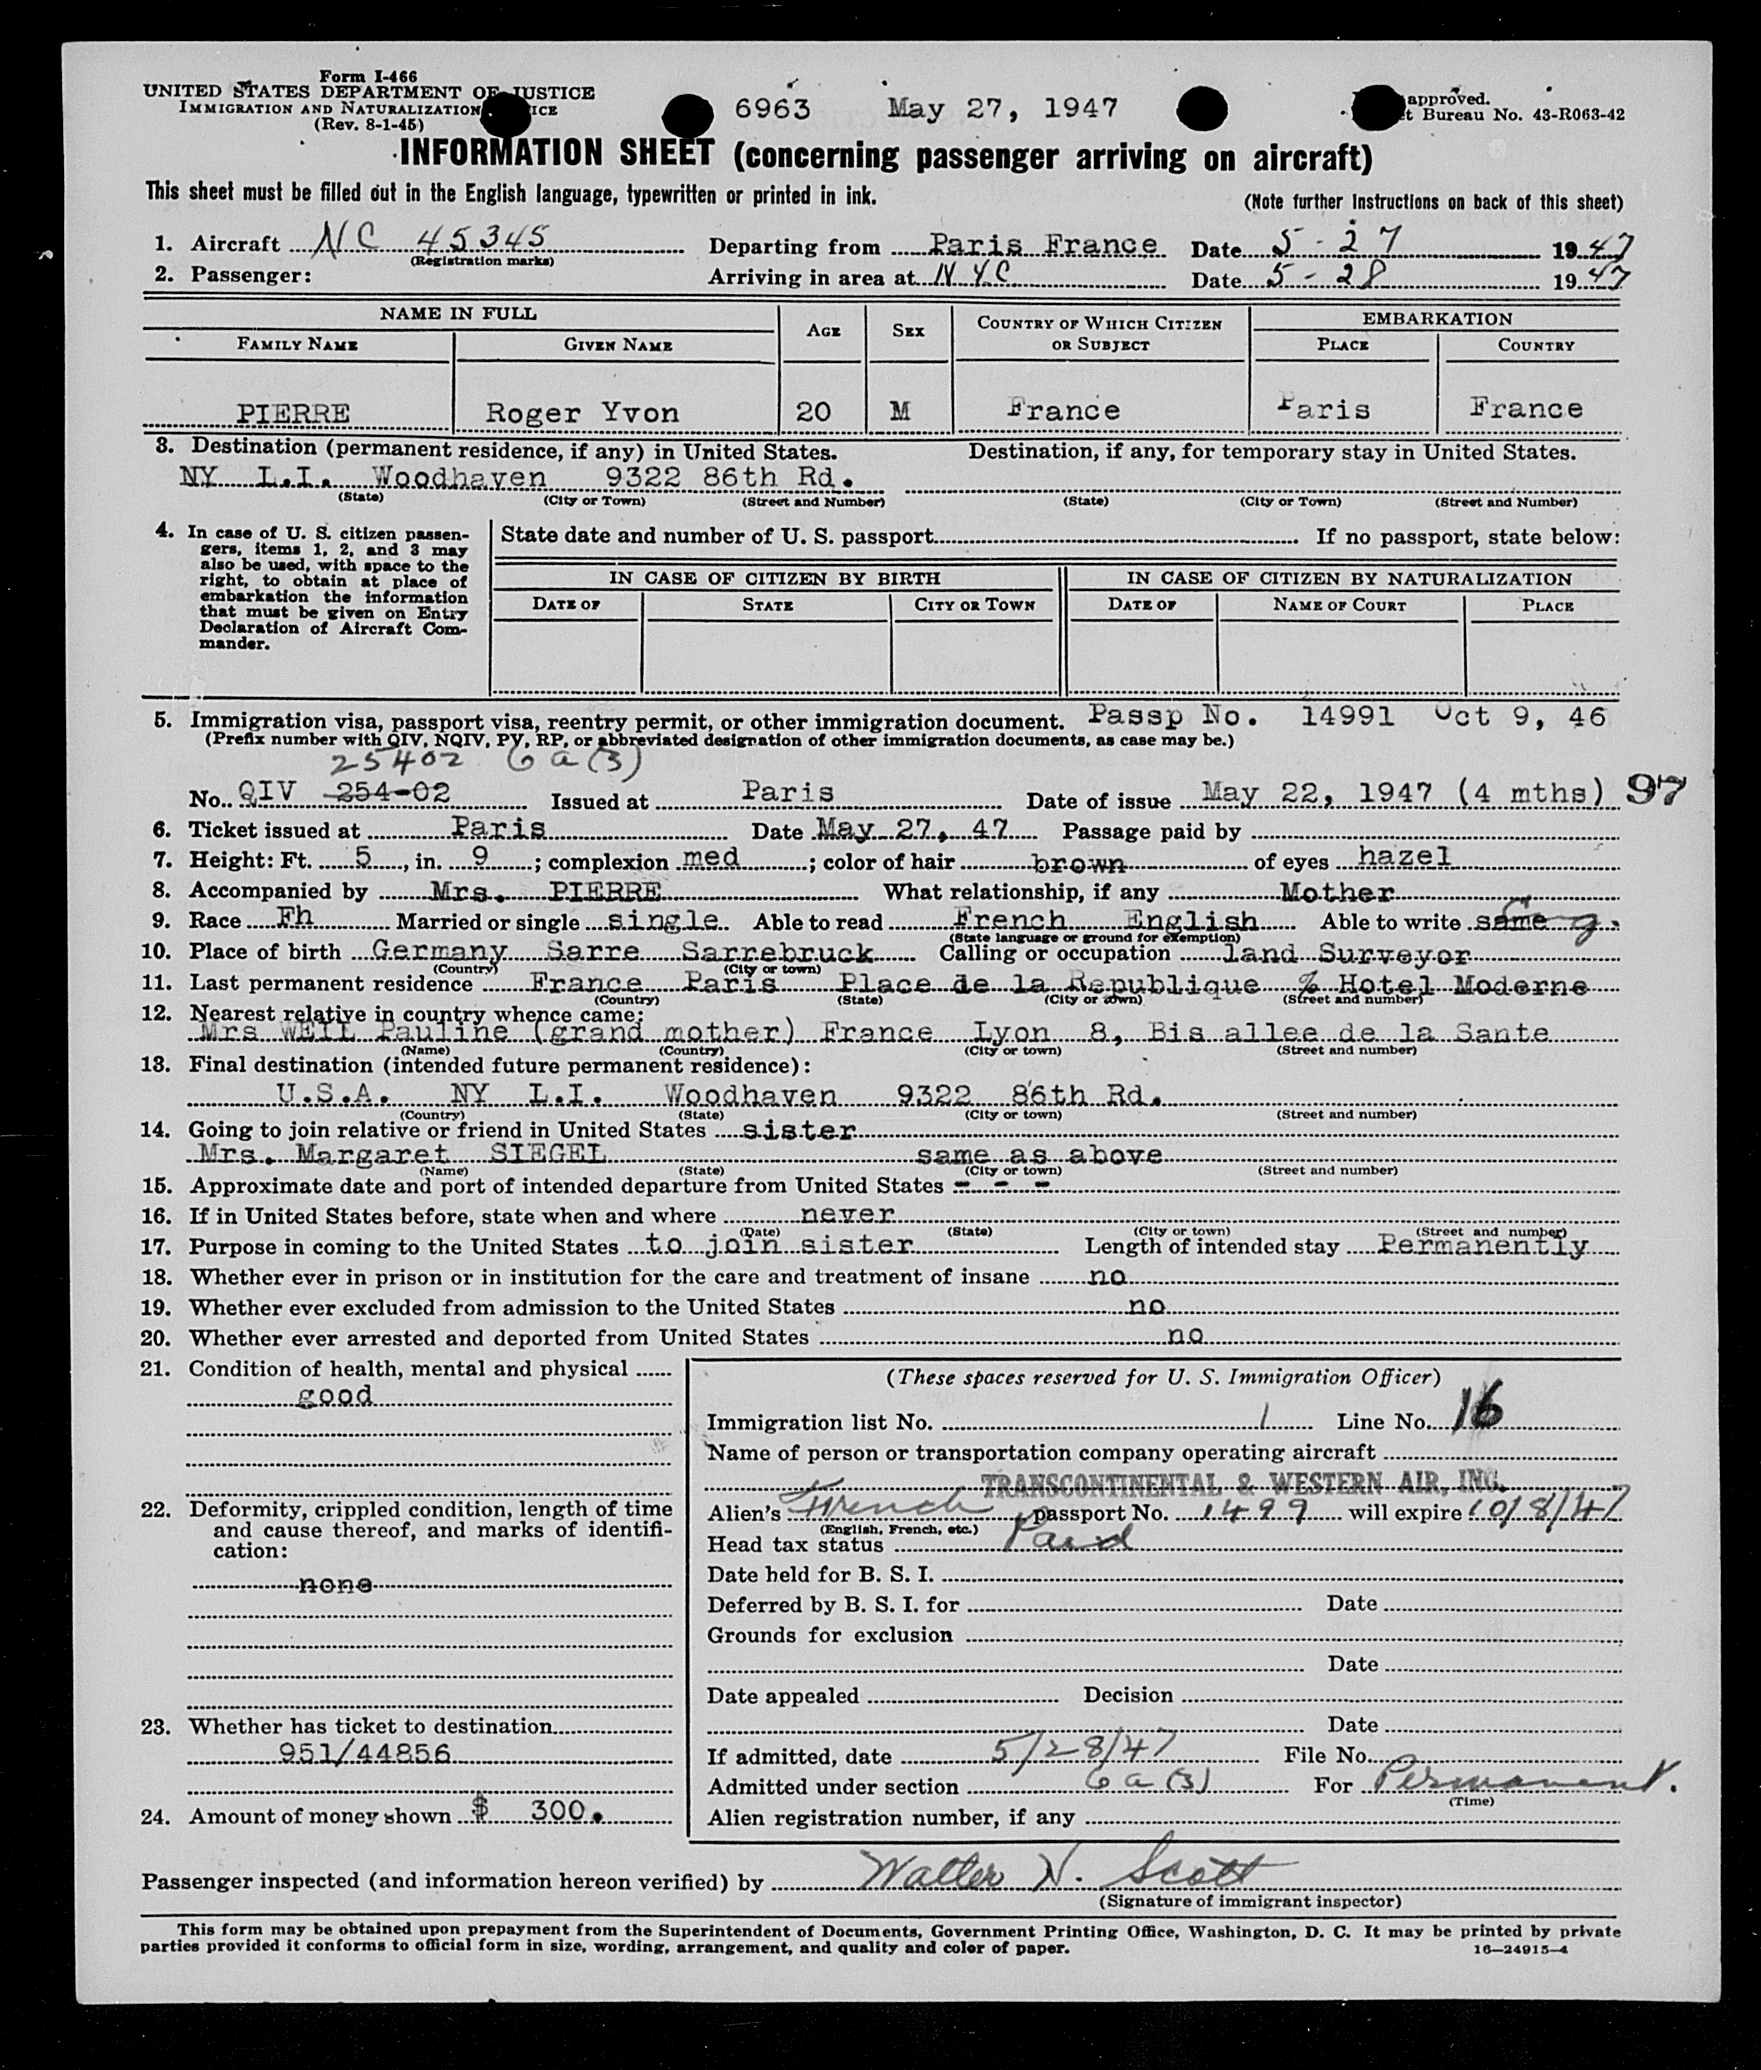 Form I-466
UNITED STATES DEPARTMENT OF JUSTICE
IMMIGRATION AND NATURALIZATION ICE
(Rev. 8-1-45)
6963 May 27, 1947
approved.
t Bureau No. 43-R063-42
INFORMATION SHEET (concerning passenger arriving on aircraft)
This sheet must be filled out in the English language, typewritten or printed in ink.
(Note further Instructions on back of this sheet)
1. Aircraft NC 45345 Departing from Paris France Date 5-27 1947
(Registration marks)
2. Passenger: Arriving in area at NYC Date 5-28 1947
NAME IN FULL AGE SEX COUNTRY OF WHICH CITIZEN OR SUBJECT EMBARKATION
FAMILY NAME GIVEN NAME PLACE COUNTRY
PIERRE Roger Yvon 20 M France Paris France
3. Destination (permanent residence, if any) in United States. Destination, if any, for temporary stay in United States.
NY L.I. Woodhaven 9322 86th Rd.
(State) (City or Town) (Street and Number) (State) (City or Town) (Street and Number)
4. In case of U. S. citizen passen-
gers, items 1, 2, and 3 may
also be used, with space to the
right, to obtain at place of
embarkation the information
that must be given on Entry
Declaration of Aircraft Com-
mander.
State date and number of U. S. passport If no passport, state below:
IN CASE OF CITIZEN BY BIRTH IN CASE OF CITIZEN BY NATURALIZATION
DATE OF STATE CITY OR TOWN DATE OF NAME OF COURT PLACE
5. Immigration visa, passport visa, reentry permit, or other immigration document. Passp No. 14991 Oct 9, 46
(Prefix number with QIV, NQIV, PV, RP, or abbreviated designation of other immigration documents, as case may be.)
25402 6a(3)
No. QIV 254-02 Issued at Paris Date of issue May 22, 1947 (4 mths) 97
6. Ticket issued at Paris Date May 27, 47 Passage paid by
7. Height: Ft. 5, in. 9; complexion med; color of hair brown of eyes hazel
8. Accompanied by Mrs. PIERRE What relationship, if any Mother
9. Race Fh Married or single single Able to read French English Able to write same
(State language or ground for exemption)
10. Place of birth Germany Sarre Sarrebruck Calling or occupation land Surveyor
(Country) (City or town)
11. Last permanent residence France Paris Place de la Republique % Hotel Moderne
(Country) (State) (City or town) (Street and number)
12. Nearest relative in country whence came:
Mrs WEIL Pauline (grand mother) France Lyon 8, Bis allee de la Sante
(Name) (Country) (City or town) (Street and number)
13. Final destination (intended future permanent residence):
U.S.A. NY L.I. Woodhaven 9322 86th Rd.
(Country) (State) (City or town) (Street and number)
14. Going to join relative or friend in United States sister
Mrs. Margaret SIEGEL same as above
(Name) (State) (City or town) (Street and number)
15. Approximate date and port of intended departure from United States - - -
16. If in United States before, state when and where never
(Date) (State) (City or town) (Street and number)
17. Purpose in coming to the United States to join sister Length of intended stay Permanently
18. Whether ever in prison or in institution for the care and treatment of insane no
19. Whether ever excluded from admission to the United States no
20. Whether ever arrested and deported from United States no
21. Condition of health, mental and physical
good
22. Deformity, crippled condition, length of time
and cause thereof, and marks of identifi-
cation:
none
23. Whether has ticket to destination
951/44856
24. Amount of money shown $ 300.
(These spaces reserved for U. S. Immigration Officer)
Immigration list No. 1 Line No. 16
Name of person or transportation company operating aircraft
TRANSCONTINENTAL & WESTERN AIR, INC.
Alien's French passport No. 1499 will expire 10/8/47
(English, French, etc.)
Head tax status Paid
Date held for B. S. I.
Deferred by B. S. I. for Date
Grounds for exclusion
Date
Date appealed Decision
Date
If admitted, date 5/28/47 File No.
Admitted under section 6a(3) For Permanent.
(Time)
Alien registration number, if any
Passenger inspected (and information hereon verified) by Walter N. Scott
(Signature of immigrant inspector)
This form may be obtained upon prepayment from the Superintendent of Documents, Government Printing Office, Washington, D. C. It may be printed by private
parties provided it conforms to official form in size, wording, arrangement, and quality and color of paper.
16—24915-4